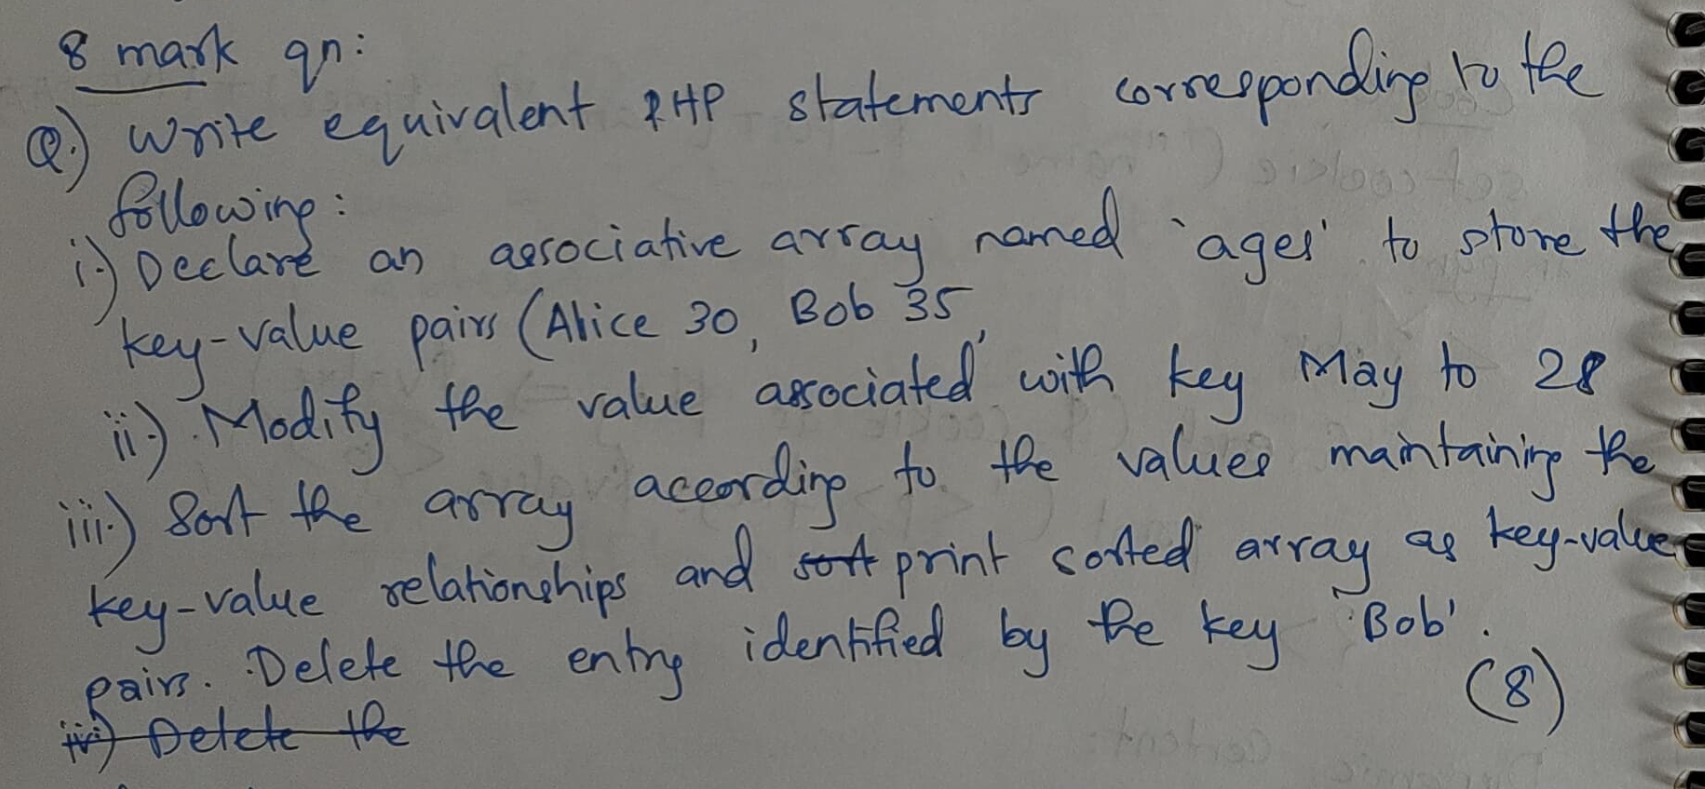 8 mark qn:
Q.) Write equivalent PHP statements corresponding to the
following:
i.) Declare an associative array named 'ages' to store the
key-value pairs (Alice 30, Bob 35,
ii.) Modify the value associated with key May to 28
iii.) Sort the array according to the values maintaining the
key-value relationships and sort print sorted array as key-value
pairs. Delete the entry identified by the key 'Bob'.
(8)
iv) Delete the